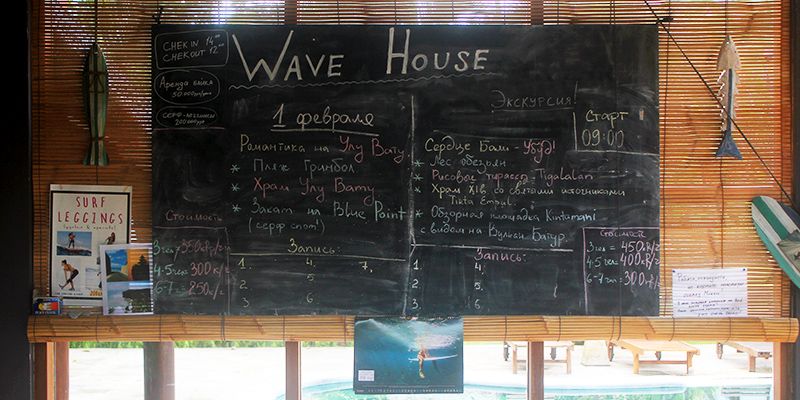 CHEK IN 14 00
CHEK OUT 12 00
WAVE HOUSE
Аренда байка
50.000
СЕРФ-
200000
1 февраля
Романтика на Улу Вату
* Пляж Гринбол
* Храм Улу Вату
* Закат на Blue Point
(серф спот!)
Стоимость
3 чел 350к
4-5 чел 300к
6-7 250к
Запись:
1. 4. 7.
2. 5
3. 6
ЭКСКУРСИЯ!
Старт
09:00
Сердце Бали - Убуд!
* Лес обезьян
* Рисовые террасы - Tigalalan
* Храм XIв. со святыми источниками
Tikta Empul.
* Обзорная площадка Kintamani
с видом на Вулкан Батур.
Стоимость
3 чел = 450к
4-5 чел 400
6-7 чел = 300
Запись:
1. 4.
2. 5
3. 6
SURF
LEGGINGS